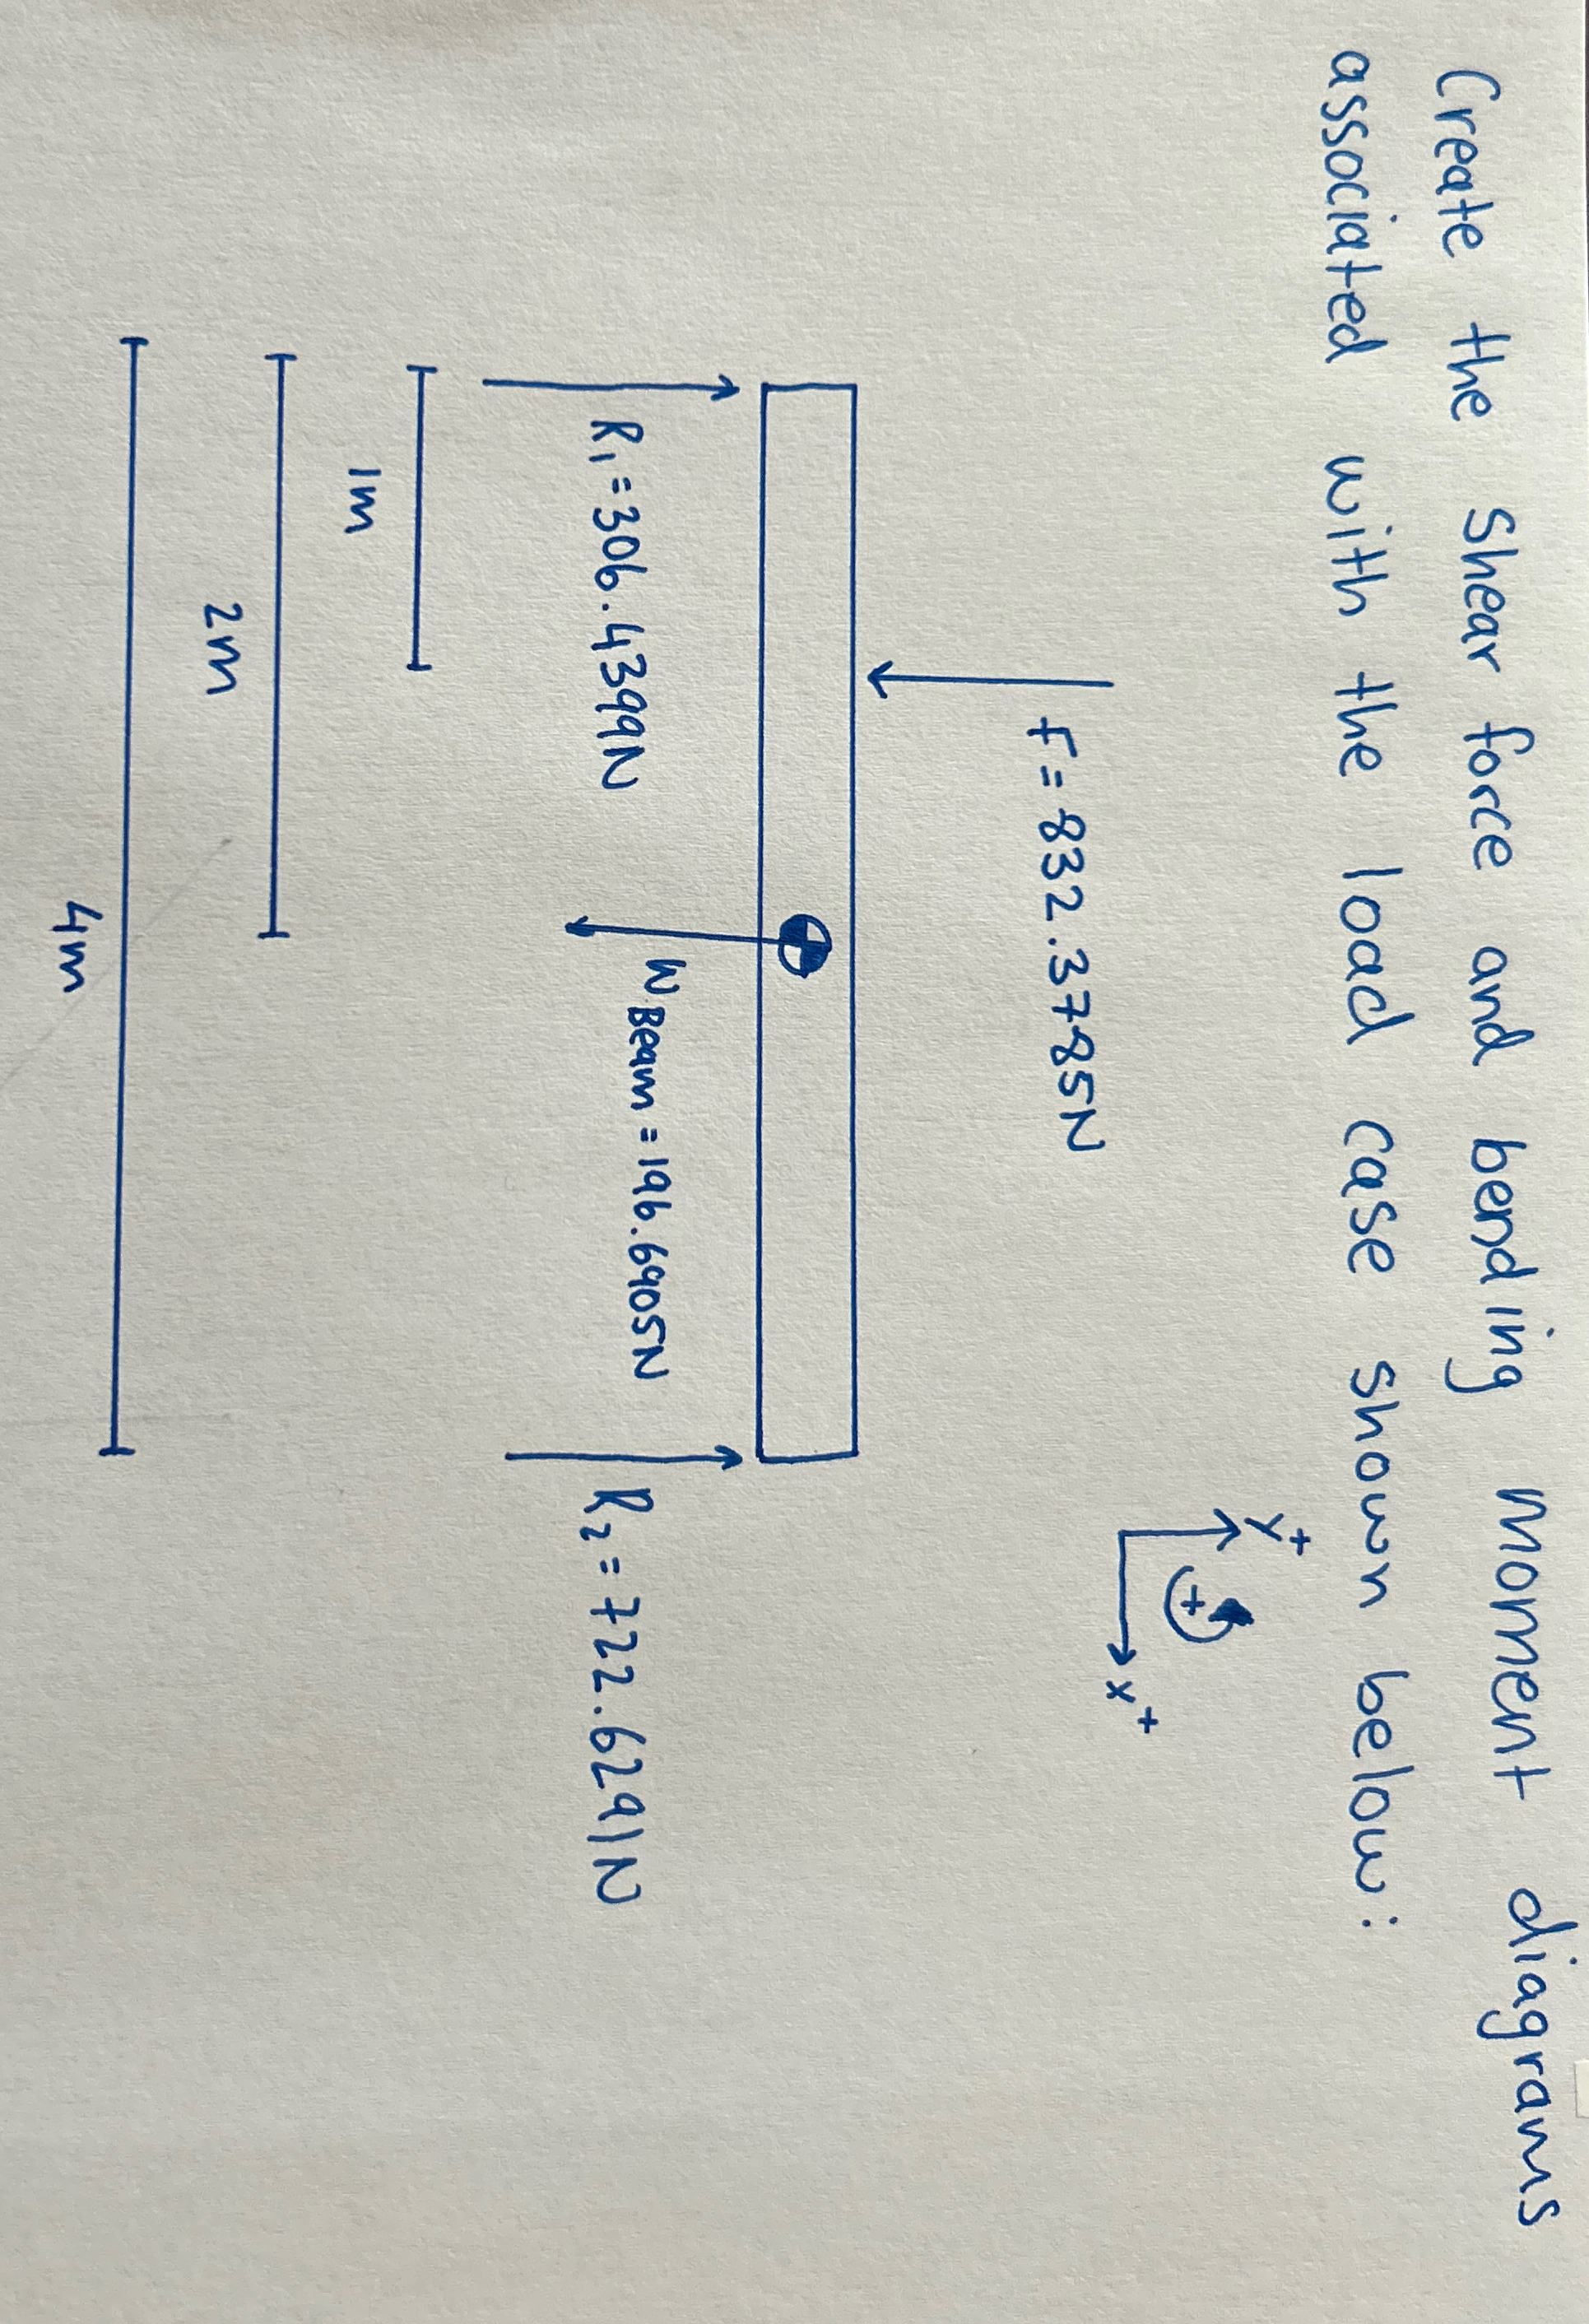 Create the shear force and bending moment diagrams
associated with the load case shown below:
y+
+
x+
F = 832.3785N
R1 = 306.4399N
WBeam = 196.6905N
R2 = 722.6291N
1m
2m
4m